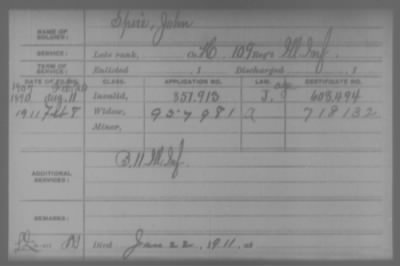 NAME OF SOLDIER: Spire, John
SERVICE: Late rank, Co. K, 109 Reg't Ill Inf.
TERM OF SERVICE: Enlisted , 1 Discharged , 1
DATE OF FILING. CLASS. APPLICATION NO. LAW. CERTIFICATE NO.
1907
1890 Aug. 11 Invalid, 857.913 J. 603.494
1911 Feb 8 Widow, 957981 718132
Minor,
ADDITIONAL SERVICES: B. 11 Ill Inf.
REMARKS:
Died Jan 22, 1911, at